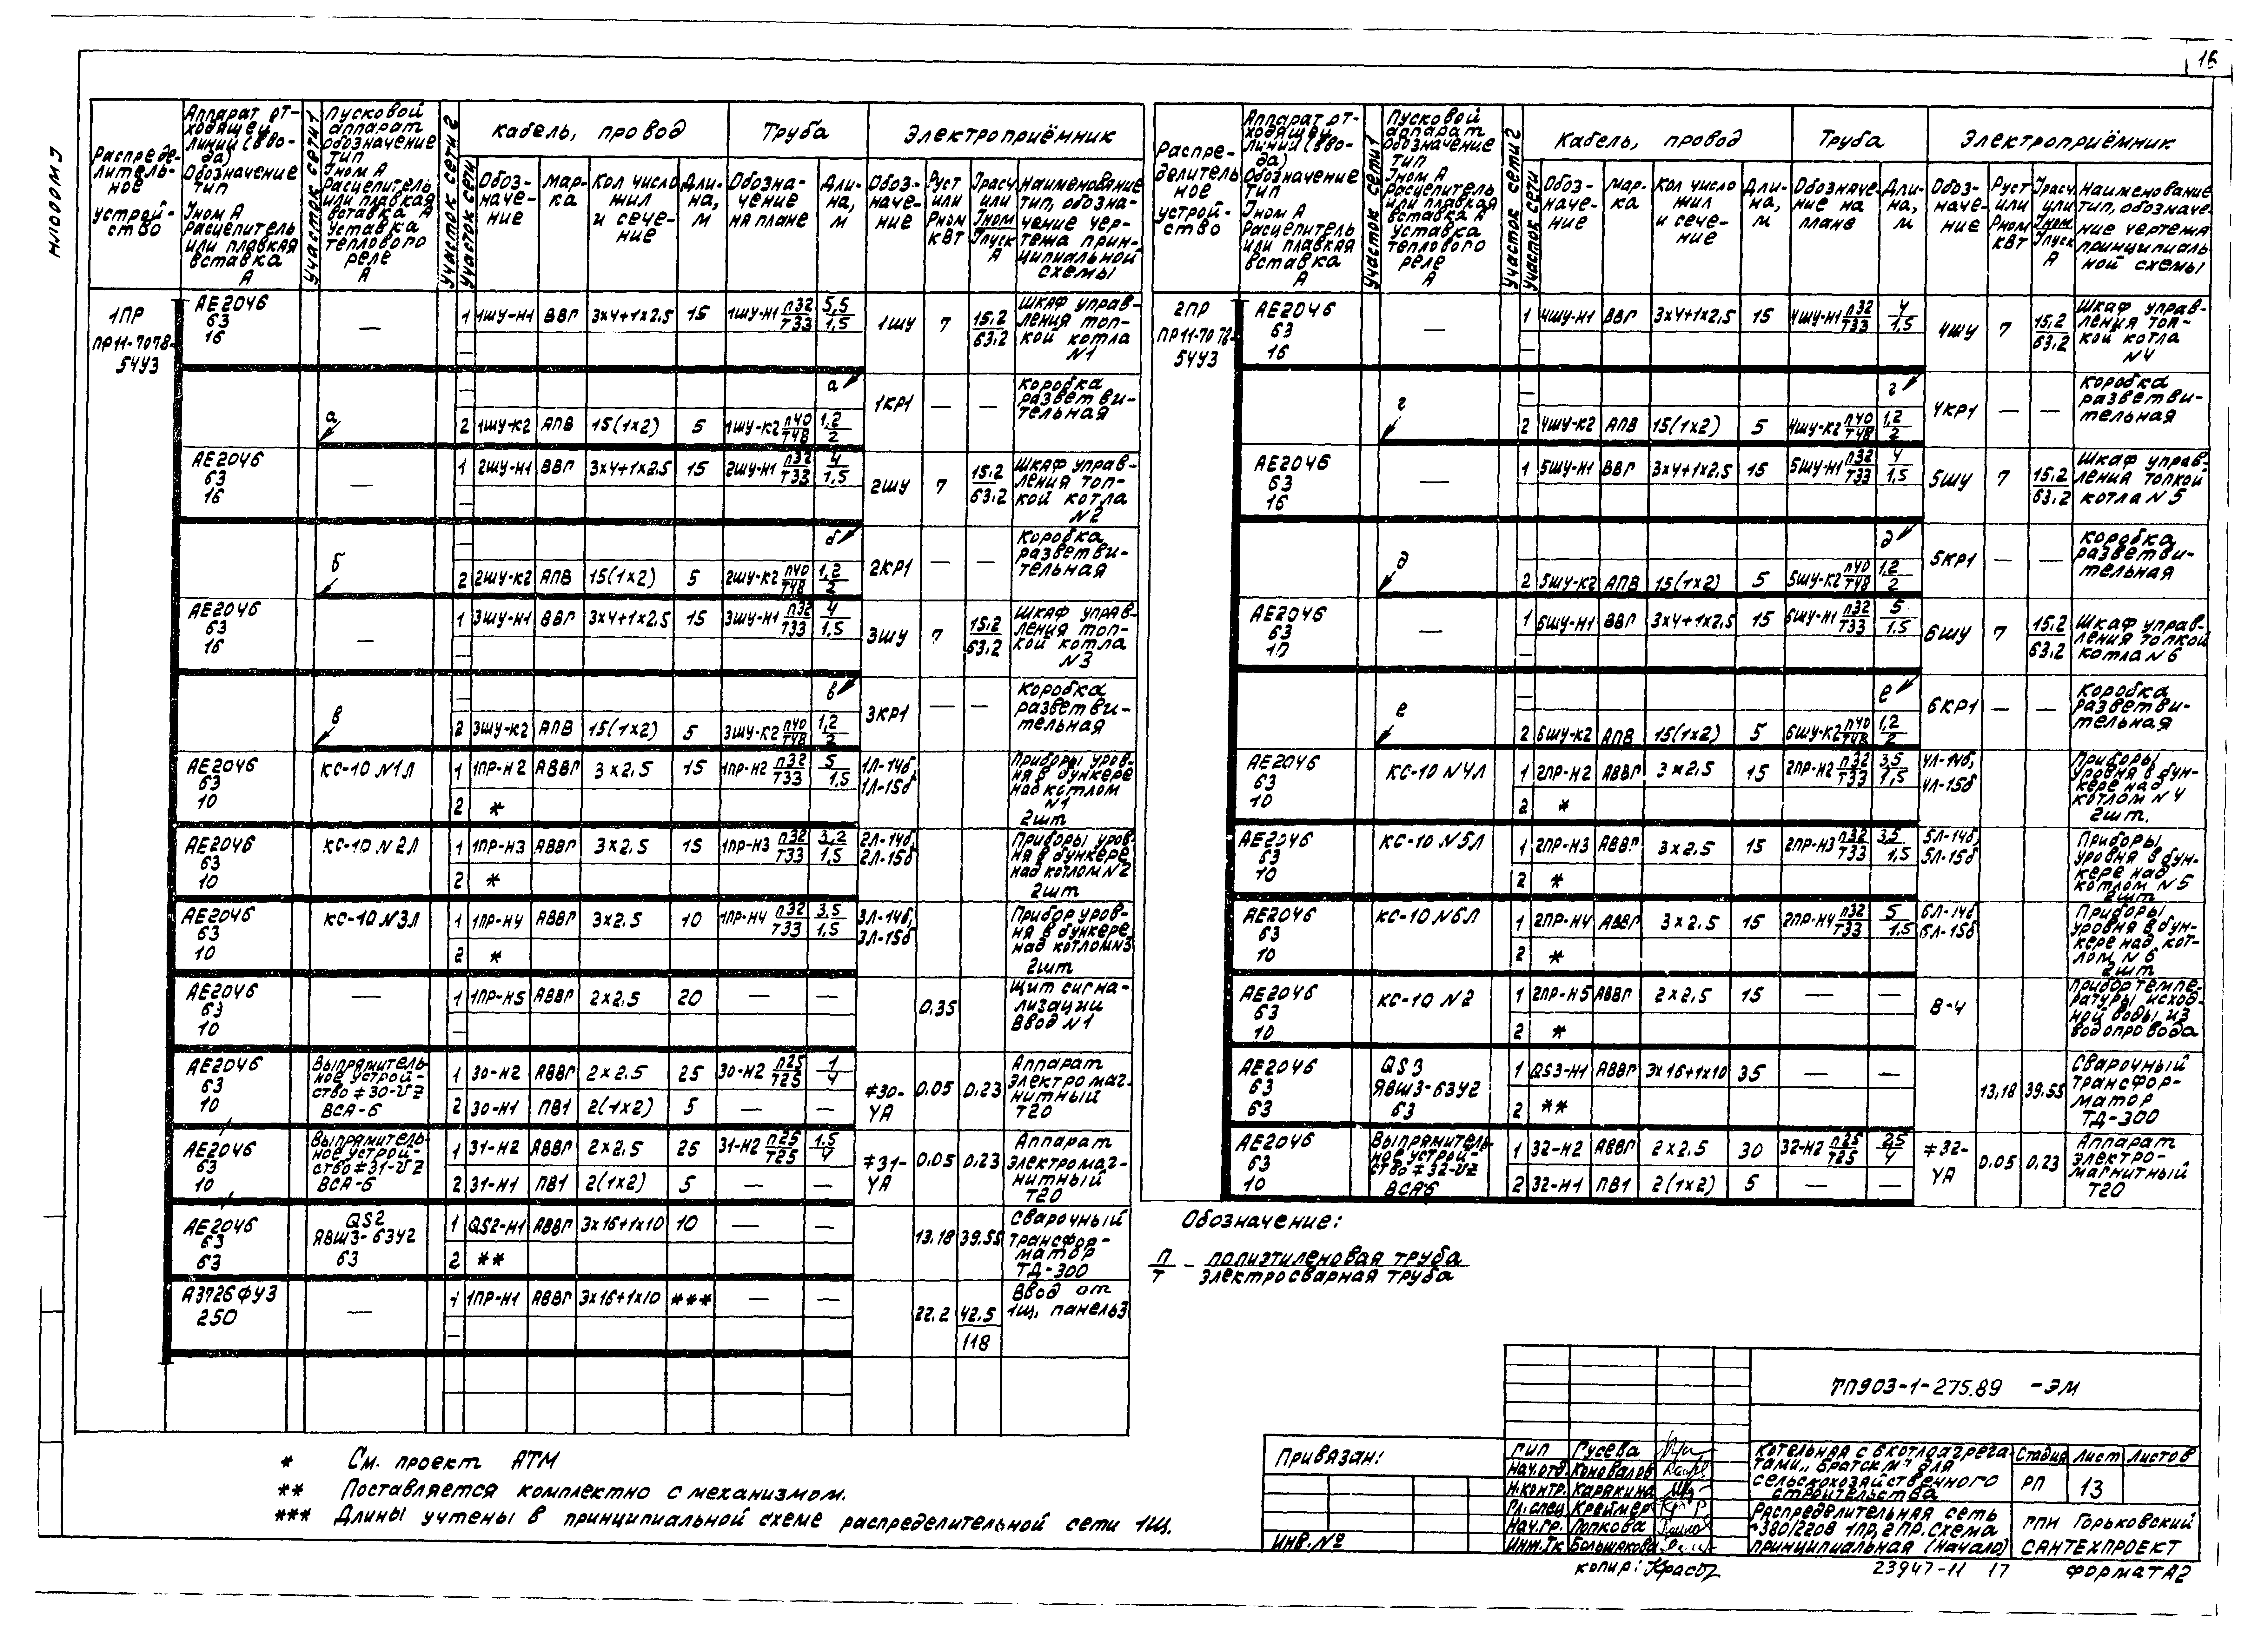 16
НЛОООМУ
Распреде-
литель-
ное
устрой-
ство
Аппарат от-
ходящей
линии (вво-
да)
Обозначение
тип
Iном А
Расцепитель
или плавкая
вставка
А
Участок сети 1
Пусковой
аппарат
обозначение
тип
Iном А
Расцепитель
или плавкая
вставка А
Уставка
теплового
реле
А
Участок сети 2
Участок сети
Кабель, провод
Обоз-
наче-
ние
Мар-
ка
Кол число
жил
и сече-
ние
Дли-
на,
м
Труба
Обозна-
чение
на плане
Дли-
на,
м
Электроприёмник
Обоз-
наче-
ние
Руст
или
Рном
кВт
Iрасч
или
Iном
Iпуск
А
Наименование
тип, обозна-
чение чер-
тежа прин-
ципиальной
схемы
1ПР
ПР11-7078-
54У3
АЕ2046 63 16 — 1 1ШУ-Н1 ВВГ 3х4+1х2,5 15 1ШУ-Н1 П32/Т33 5,5/1,5 1ШУ 7 15,2/63,2 Шкаф управ-
ления топ-
кой котла
N1
а а 2 1ШУ-К2 АПВ 15(1х2) 5 1ШУ-К2 П40/Т48 1,2/2 1КР1 — — Коробка
разветви-
тельная
АЕ2046 63 16 — 1 2ШУ-Н1 ВВГ 3х4+1х2,5 15 2ШУ-Н1 П32/Т33 4/1,5 2ШУ 7 15,2/63,2 Шкаф управ-
ления топ-
кой котла
N2
б б 2 2ШУ-К2 АПВ 15(1х2) 5 2ШУ-К2 П40/Т48 1,2/2 2КР1 — — Коробка
разветви-
тельная
АЕ2046 63 16 — 1 3ШУ-Н1 ВВГ 3х4+1х2,5 15 3ШУ-Н1 П32/Т33 4/1,5 3ШУ 7 15,2/63,2 Шкаф управ-
ления топ-
кой котла
N3
в в 2 3ШУ-К2 АПВ 15(1х2) 5 3ШУ-К2 П40/Т48 1,2/2 3КР1 — — Коробка
разветви-
тельная
АЕ2046 63 10 КС-10 N1Л 1 1ПР-Н2 АВВГ 3х2,5 15 1ПР-Н2 П32/Т33 5/1,5 1Л-14б, 1Л-15б Приборы уров-
ня в бункере
над котлом
N1
2шт
2 *
АЕ2046 63 10 КС-10 N2Л 1 1ПР-Н3 АВВГ 3х2,5 15 1ПР-Н3 П32/Т33 3,2/1,5 2Л-14б, 2Л-15б Приборы уров-
ня в бункере
над котлом N2
2шт
2 *
АЕ2046 63 10 КС-10 N3Л 1 1ПР-Н4 АВВГ 3х2,5 10 1ПР-Н4 П32/Т33 3,5/1,5 3Л-14б, 3Л-15б Прибор уров-
ня в бункере
над котлом N3
2шт
2 *
АЕ2046 63 10 — 1 1ПР-Н5 АВВГ 2х2,5 20 — — 0,35 Щит сигна-
лизации
Ввод N1
АЕ2046 63 10 Выпрямитель-
ное устрой-
ство ≠30-VZ
ВСА-6
1 30-Н2 АВВГ 2х2,5 25 30-Н2 П25/Т25 1/4 ≠30-YA 0,05 0,23 Аппарат
электромаг-
нитный
Т20
2 30-Н1 ПВ1 2(1х2) 5 — —
АЕ2046 63 10 Выпрямитель-
ное устрой-
ство ≠31-VZ
ВСА-6
1 31-Н2 АВВГ 2х2,5 25 31-Н2 П25/Т25 1,5/4 ≠31-YA 0,05 0,23 Аппарат
электромаг-
нитный
Т20
2 31-Н1 ПВ1 2(1х2) 5 — —
АЕ2046 63 63 QS2 ЯВШ3-63У2 63 1 QS2-Н1 АВВГ 3х16+1х10 10 — — 13,18 39,55 Сварочный
трансфор-
матор
ТД-300
2 **
А3726ФУ3 250 — 1 1ПР-Н1 АВВГ 3х16+1х10 *** — — 22,2 42,5/118 Ввод от
1Щ, панель 3
Распре-
делитель
ное
устрой-
ство
Аппарат от-
ходящей
линии (вво-
да)
Обозначение
тип
Iном А
Расцепитель
или плавкая
вставка
А
Участок сети 1
Пусковой
аппарат
обозначение
тип
Iном А
Расцепитель
или плавкая
вставка А
Уставка
теплового
реле
А
Участок сети 2
Участок сети
Кабель, провод
Обоз-
наче-
ние
Мар-
ка
Кол число
жил
и сече-
ние
Дли-
на,
м
Труба
Обозначе-
ние на
плане
Дли-
на,
м
Электроприёмник
Обоз-
наче-
ние
Руст
или
Рном
кВт
Iрасч
или
Iном
Iпуск
А
Наименование
тип, обозначе-
ние чертежа
принципиаль-
ной схемы
2ПР
ПР11-7078-
54У3
АЕ2046 63 16 — 1 4ШУ-Н1 ВВГ 3х4+1х2,5 15 4ШУ-Н1 П32/Т33 4/1,5 4ШУ 7 15,2/63,2 Шкаф управ-
ления топ-
кой котла
N4
г г 2 4ШУ-К2 АПВ 15(1х2) 5 4ШУ-К2 П40/Т48 1,2/2 4КР1 — — Коробка
разветви-
тельная
АЕ2046 63 16 — 1 5ШУ-Н1 ВВГ 3х4+1х2,5 15 5ШУ-Н1 П32/Т33 4/1,5 5ШУ 7 15,2/63,2 Шкаф управ-
ления топкой
котла N5
д д 2 5ШУ-К2 АПВ 15(1х2) 5 5ШУ-К2 П40/Т48 1,2/2 5КР1 — — Коробка
разветви-
тельная
АЕ2046 63 10 — 1 6ШУ-Н1 ВВГ 3х4+1х2,5 15 6ШУ-Н1 П32/Т33 5/1,5 6ШУ 7 15,2/63,2 Шкаф управ-
ления топкой
котла N6
е е 2 6ШУ-К2 АПВ 15(1х2) 5 6ШУ-К2 П40/Т48 1,2/2 6КР1 — — Коробка
разветви-
тельная
АЕ2046 63 10 КС-10 N4Л 1 2ПР-Н2 АВВГ 3х2,5 15 2ПР-Н2 П32/Т33 3,5/1,5 4Л-14б, 4Л-15б Приборы
уровня в бун-
кере над
котлом N4
2шт.
2 *
АЕ2046 63 10 КС-10 N5Л 1 2ПР-Н3 АВВГ 3х2,5 15 2ПР-Н3 П32/Т33 3,5/1,5 5Л-14б, 5Л-15б Приборы
уровня в бун-
кере над
котлом N5
2шт
2 *
АЕ2046 63 10 КС-10 N6Л 1 2ПР-Н4 АВВГ 3х2,5 15 2ПР-Н4 П32/Т33 5/1,5 6Л-14б 6Л-15б Приборы
уровня в бун-
кере над кот-
лом N6
2шт
2 *
АЕ2046 63 10 КС-10 N2 1 2ПР-Н5 АВВГ 2х2,5 15 — — В-4 Прибор темпе-
ратуры исход-
ной воды из
водопровода
2 *
АЕ2046 63 63 QS3 ЯВШ3-63У2 63 1 QS3-Н1 АВВГ 3х16+1х10 35 — — 13,18 39,55 Сварочный
трансфор-
матор
ТД-300
2 **
АЕ2046 63 10 Выпрямитель-
ное устрой-
ство ≠32-VZ
ВСА6
1 32-Н2 АВВГ 2х2,5 30 32-Н2 П25/Т25 25/4 ≠32-YA 0,05 0,23 Аппарат
электро-
магнитный
Т20
2 32-Н1 ПВ1 2(1х2) 5 — —
Обозначение:
П/Т - полиэтиленовая труба / электросварная труба
* См. проект АТМ
** Поставляется комплектно с механизмом.
*** Длины учтены в принципиальной схеме распределительной сети 1Щ.
Привязан:
ИНВ.№
ТП903-1-275.89 -ЭМ
ГИП Гусева
Нач.отд. Коновалов
Н.контр. Карякина
Гл.спец Креймер
Нач.гр. Попкова
Инж.Iк Большакова
Котельная с 6 котлоагрега-
тами „Братск М" для
сельскохозяйственного
строительства
Стадия Лист Листов
РП 13
Распределительная сеть
~380/220В 1ПР, 2ПР. Схема
принципиальная (начало)
ГПИ Горьковский
САНТЕХПРОЕКТ
копир:
23947-11 17
Формат А2